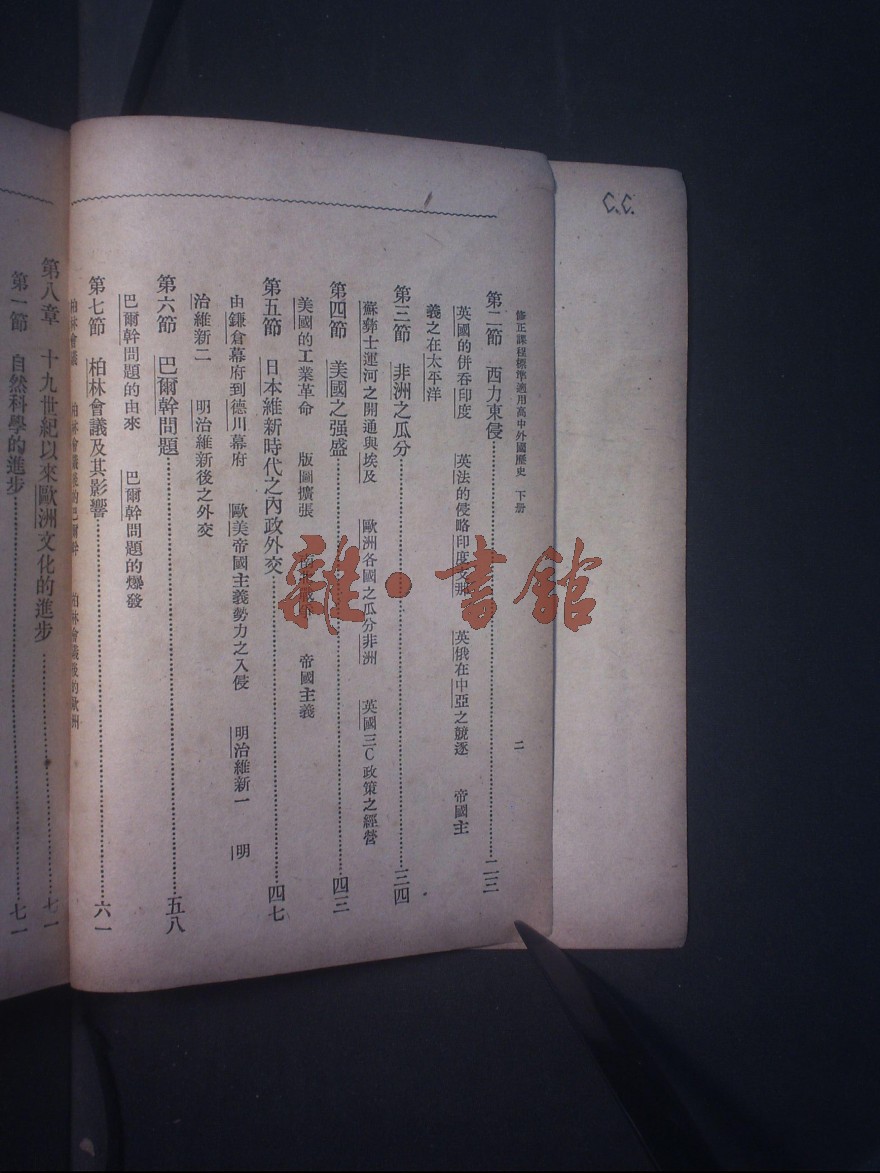 C.C.
修正課程標準適用高中外國歷史　下册
二
第二節　西力東侵……二三
英國的併吞印度　英法的侵略印度支那　英俄在中亞之競逐　帝國主
義之在太平洋
第三節　非洲之瓜分……三四
蘇彝士運河之開通與埃及　歐洲各國之瓜分非洲　英國三C政策之經營
第四節　美國之强盛……四三
美國的工業革命　版圖擴張　帝國主義
第五節　日本維新時代之內政外交……四七
由鎌倉幕府到德川幕府　歐美帝國主義勢力之入侵　明治維新一　明
治維新二　明治維新後之外交
第六節　巴爾幹問題……五八
巴爾幹問題的由來　巴爾幹問題的爆發
第七節　柏林會議及其影響……六一
柏林會議　柏林會議後的巴爾幹　柏林會議後的歐洲
第八章　十九世紀以來歐洲文化的進步……七一
第一節　自然科學的進步……七一
雜·書館